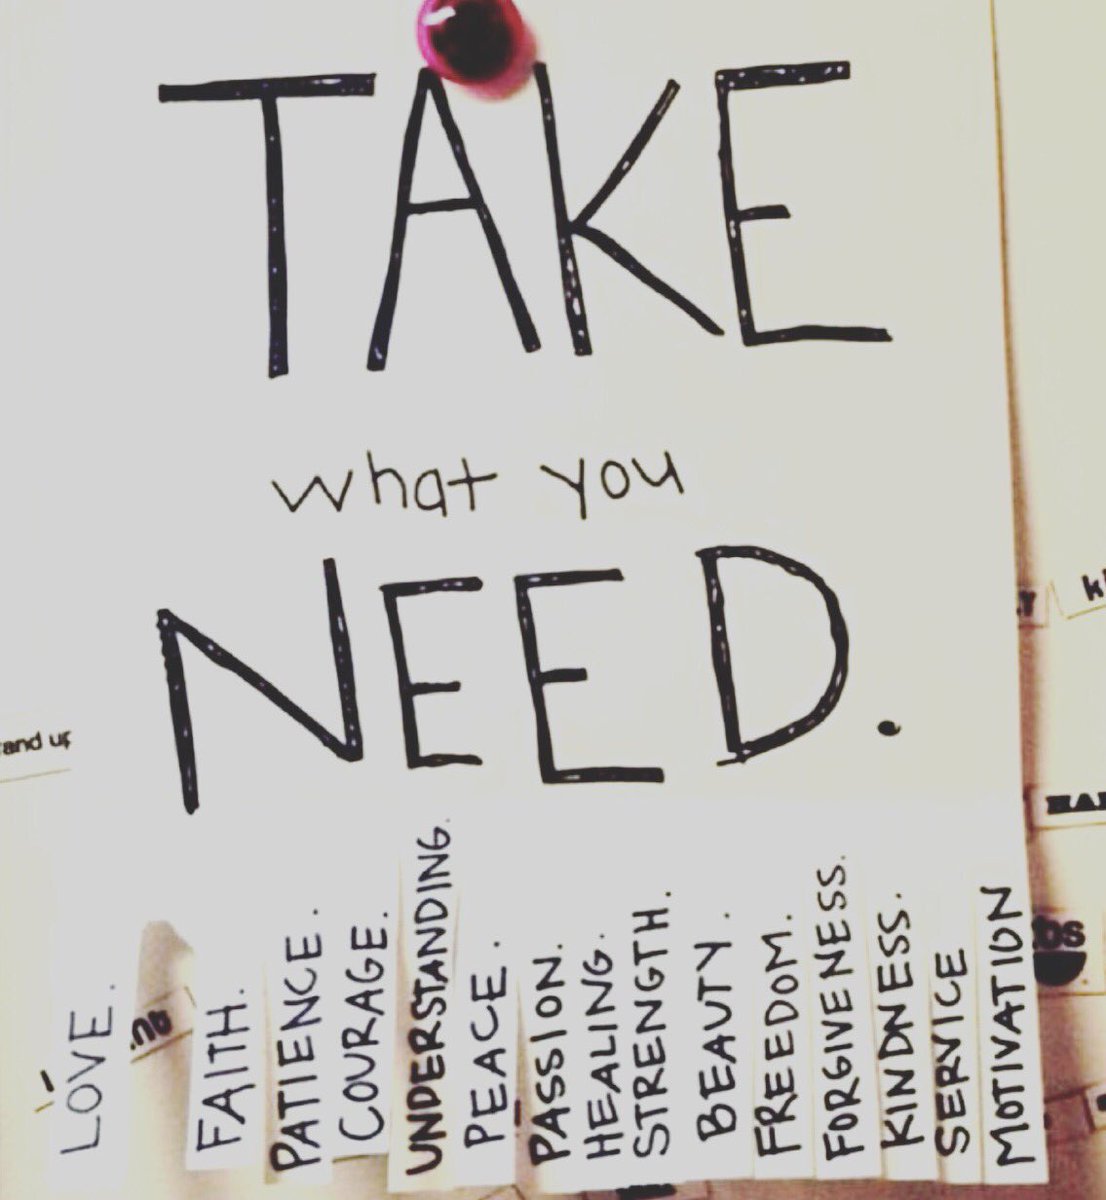 TAKE
what you
NEED.
LOVE.
FAITH.
PATIENCE.
COURAGE.
UNDERSTANDING.
PEACE.
PASSION.
HEALING.
STRENGTH.
BEAUTY.
FREEDOM.
FORGIVENESS.
KINDNESS.
SERVICE
MOTIVATION
and up